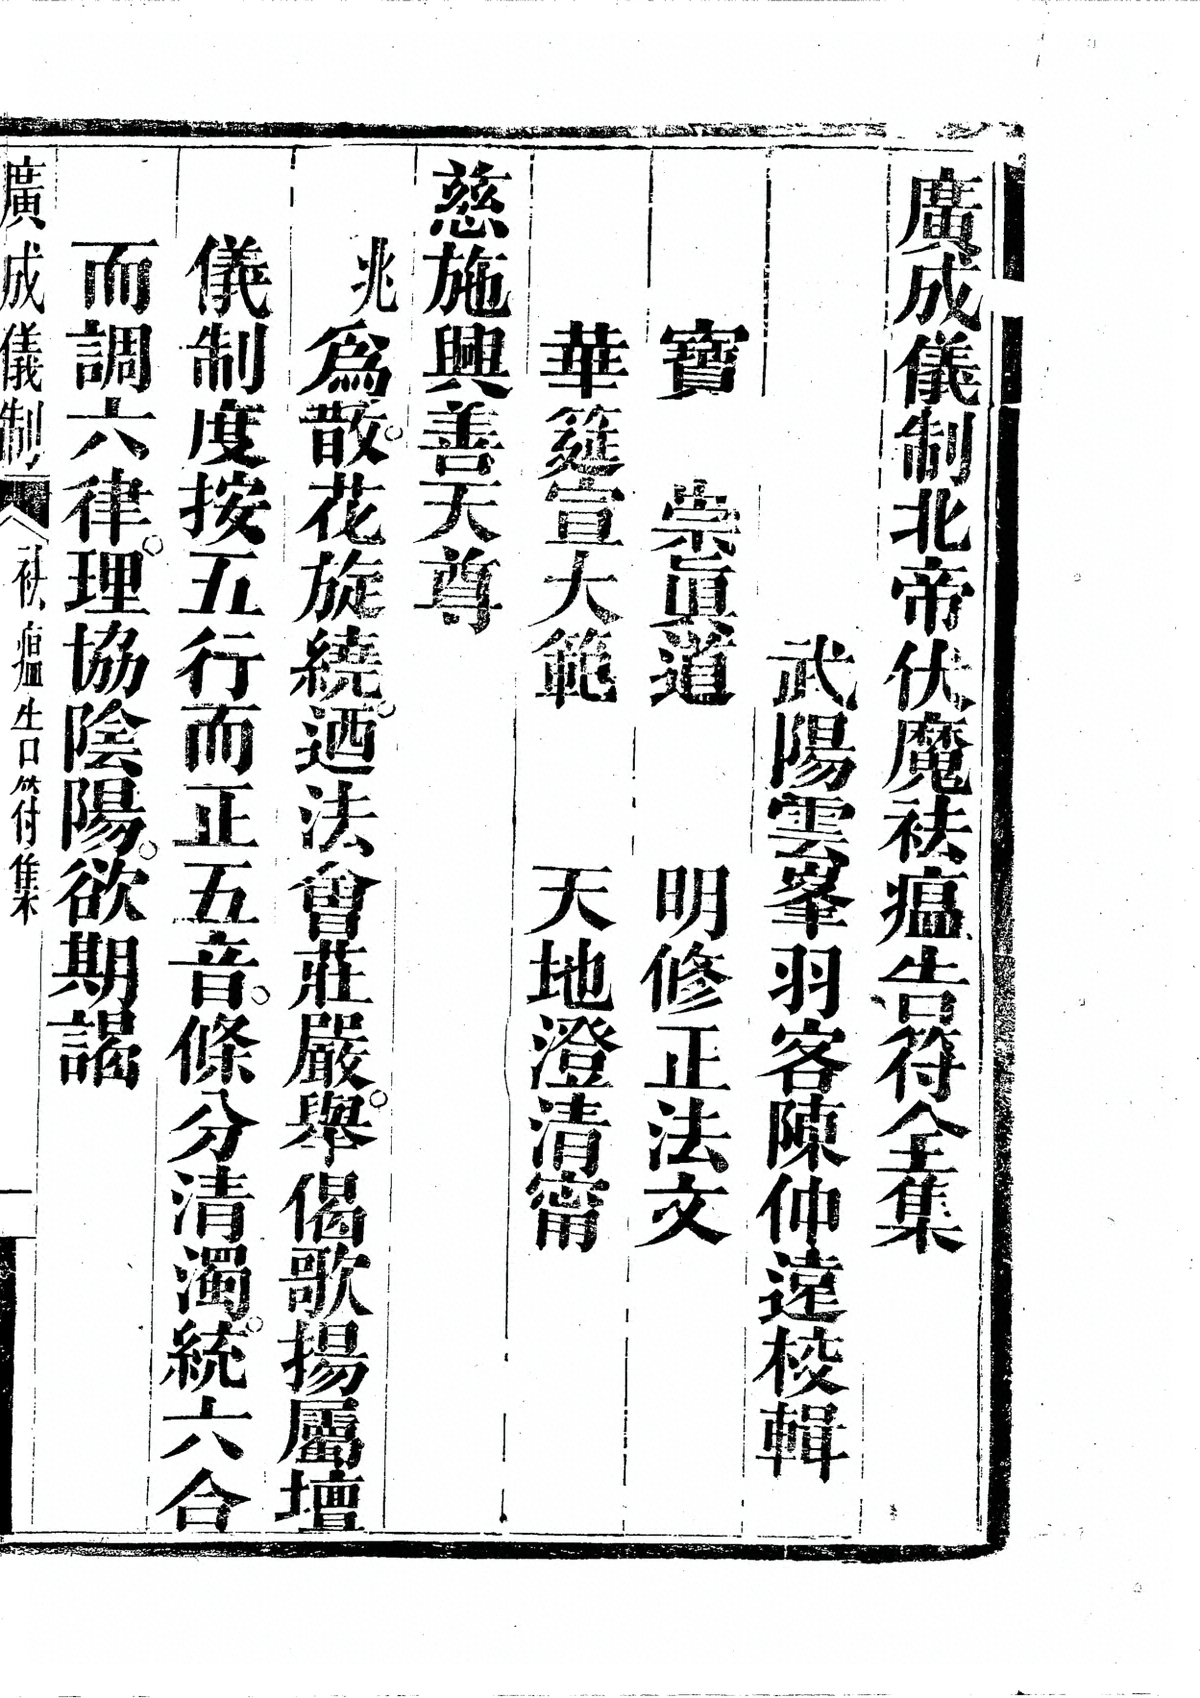 廣成儀制北帝伏魔祛瘟告符全集
武陽雲峯羽客陳仲遠校輯
寶 崇眞道 明修正法文
華筵宣大範 天地澄清甯
慈施興善天尊
兆爲散。花旋繞。迺法會莊嚴。舉偈歌揚屬壇
儀制度按五行而正五音。條分清濁。統六合
而調六律。理協陰陽。欲期謁
廣成儀制 祛瘟告符集